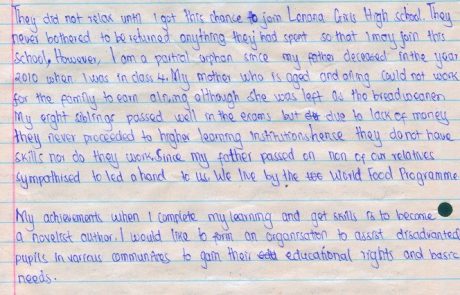 They did not relax until I got this chance to join Lenana Girls High school. They
never bothered to be returned anything they had spent so that I may join this
school, However, I am a partial orphan since my father deceased in the year
2010 when I was in class 4. My mother who is aged and ailing could not work
for the family to earn a living although she was left as the breadweaner.
My eight siblings passed well in the exams but due to lack of money
they never proceeded to higher learning institutions hence they do not have
skills nor do they work. Since my father passed on non of our relatives
sympathised to led a hand to us. We live by the World Food Programme
My achievements when I complete my learning and get skills is to become
a novelist author. I would like to form an organisation to assist disadvanted
pupils in various communities to gain their educational rights and basic
needs.